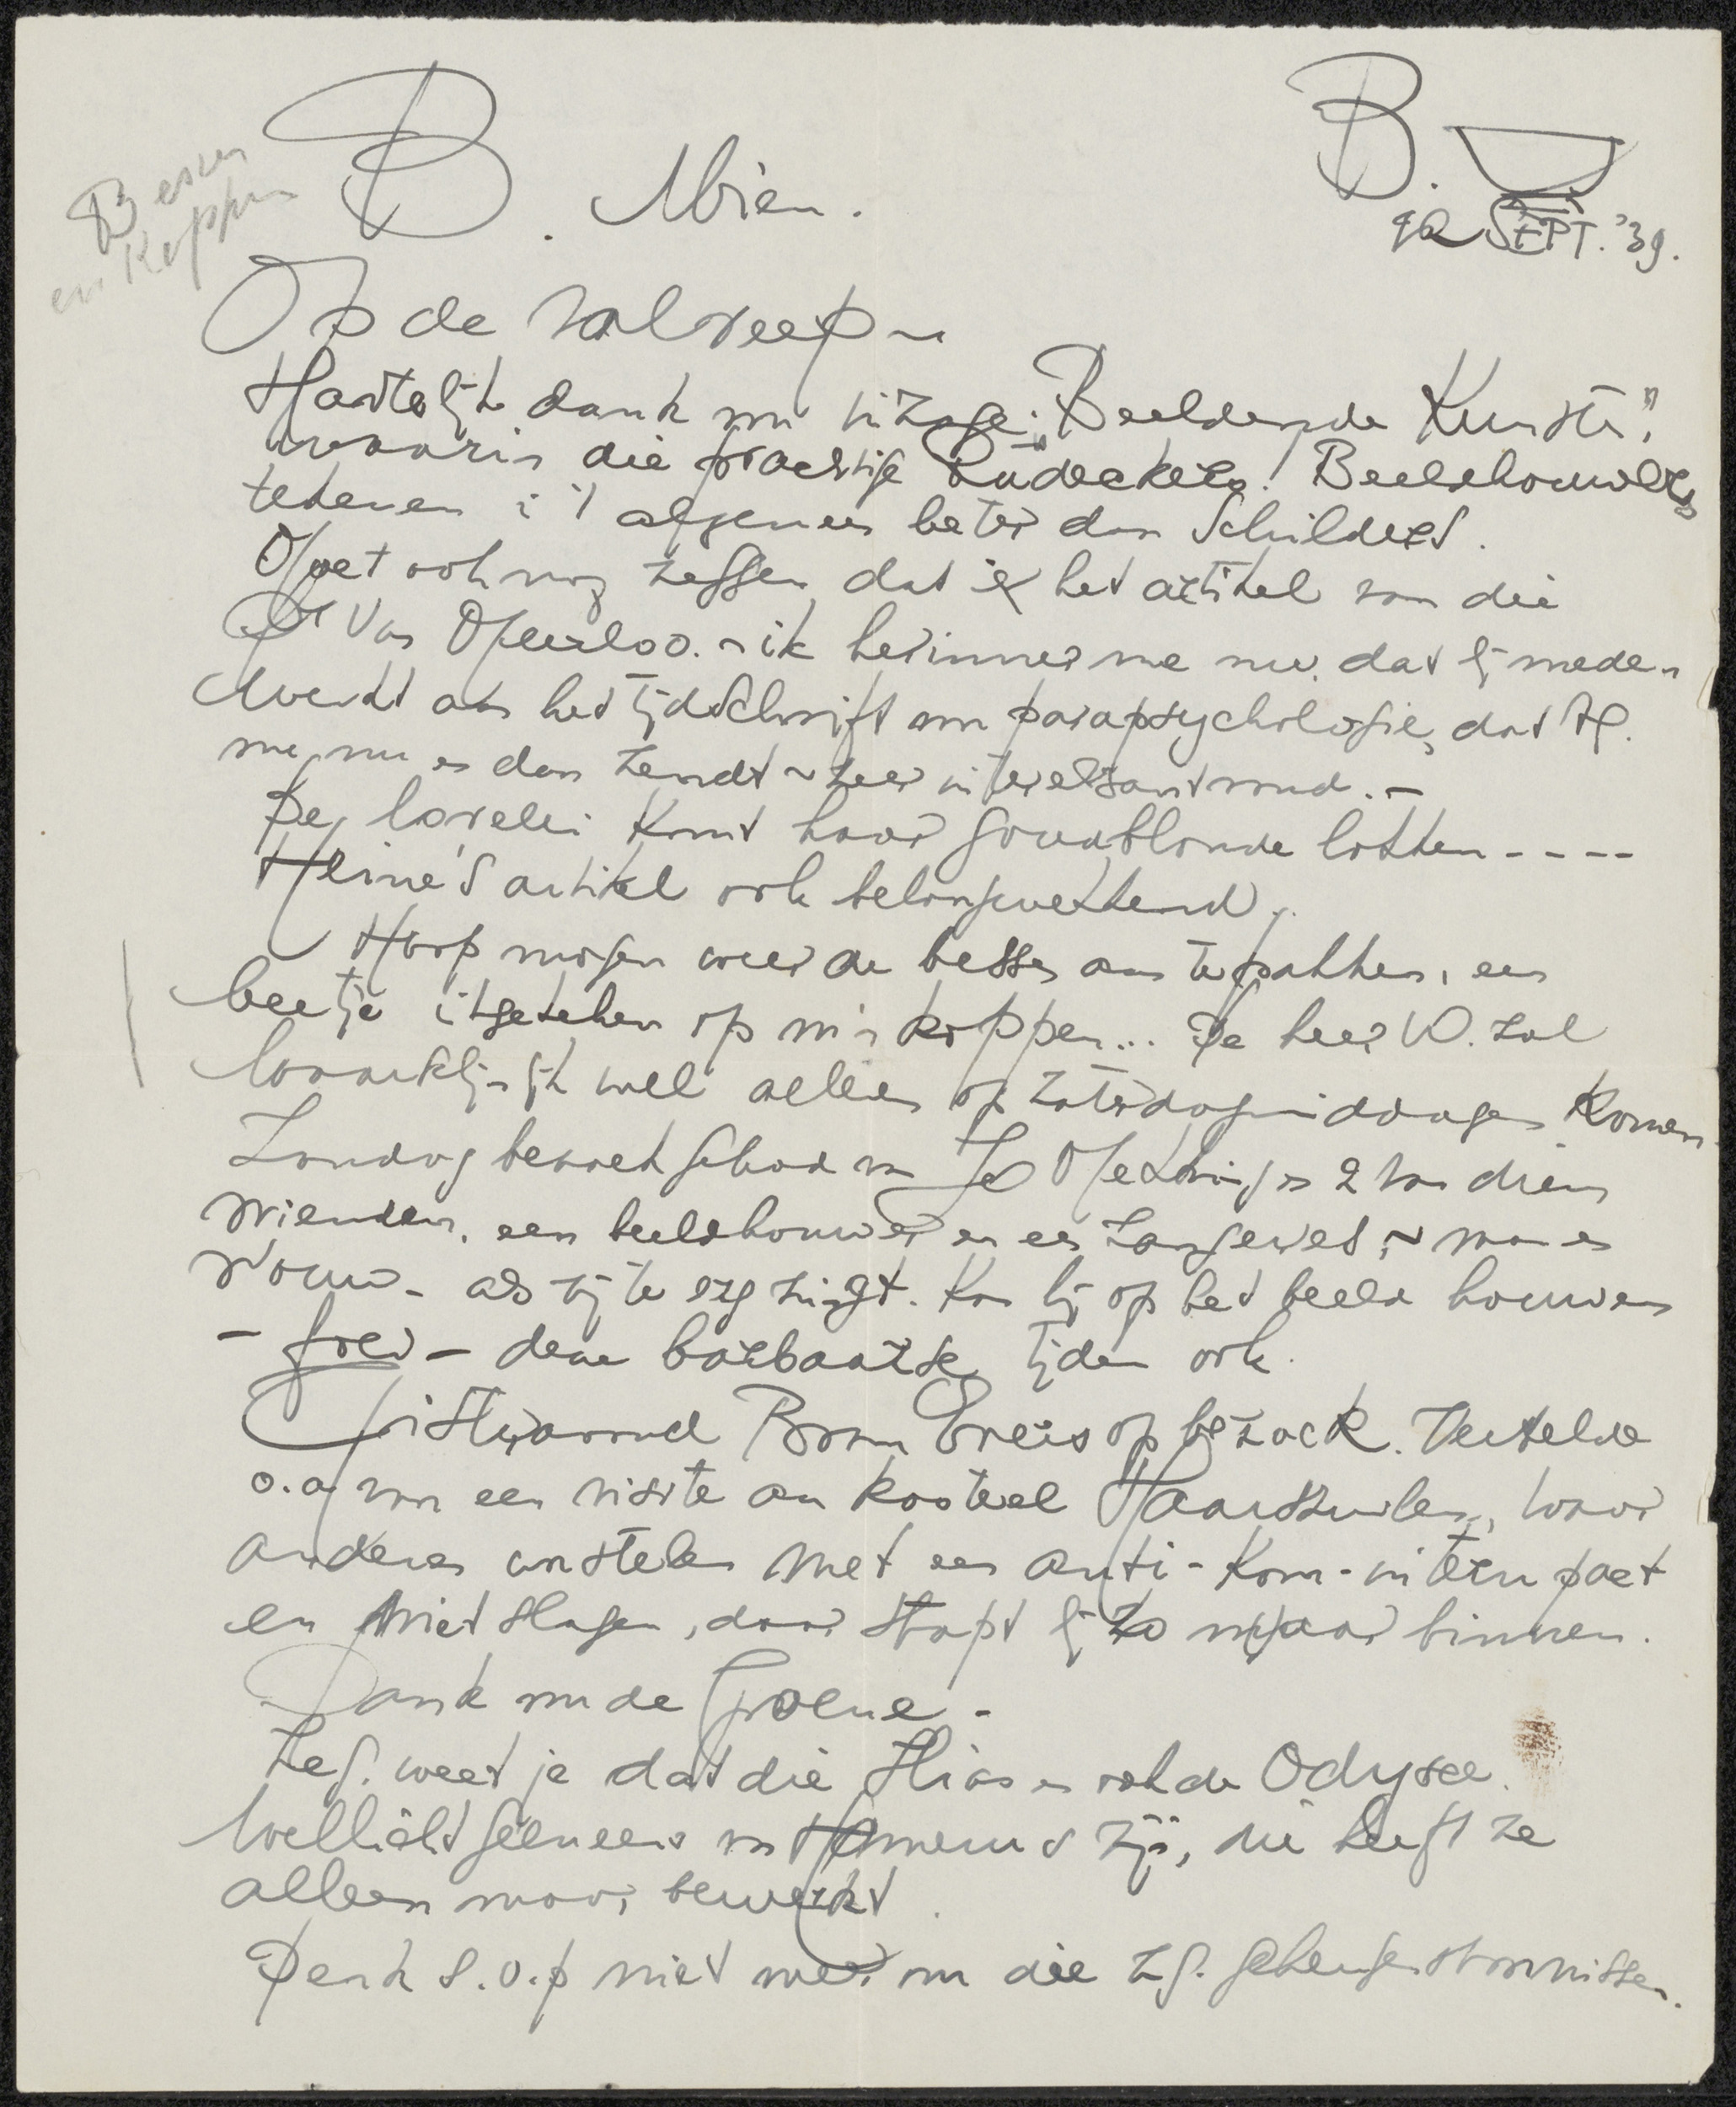 Bessen
en Koppen
B. Mien.
B.
12 SEPT. '39.
Op de valreep ~
Hartelijk dank vu inzage "Beeldende Kunst",
waarin die prachtige Rädeckers! Beeldhouwers
tekenen i 't algemeen beter dan Schilders.
Moet ook nog zeggen dat ik het artikel van die
Dr Van Meerloo. ~ ik herinner me nu, dat hij mede-
werkt aan het tijdschrift vu parapsychologie, dat H.
me nu en dan zendt ~ zeer interessant vond. -
De Lorelei kamt haar goudblonde lokken - - - -
Heine's artikel ook belangwekkend.
Hoop morgen weer de bessen aan te pakken, een
beetje uitgekeken op m'n koppen... De heer W. zal
waarschijnlijk wel alleen op Zaterdagmiddagen komen.
Zondag bezoek gehad van Jo en 2 van diens
vrienden, een beeldhouwer en een Zangeres, ~ man en
vrouw - als zij te erg zingt. Kan hij op het beeld houwen
- frei - deze barbaarse tijden ook.
Gisteravond Bram Breeis op bezoek. Vertelde
o.a. van een visite aan kasteel Haarzuilen, waar
anderen aanstelen met een anti-Kom-intern pact
en niet slagen, daar stapt hij zo maar binnen.
Dank vu de Groene -
Zeg, weet je dat die Ilias en ook de Odysee.
wellicht geeneens van Homerus zijn, die heeft ze
alleen maar bewerkt.
Denk s.v.p niet meer om die zg. geheugenstoornissen.